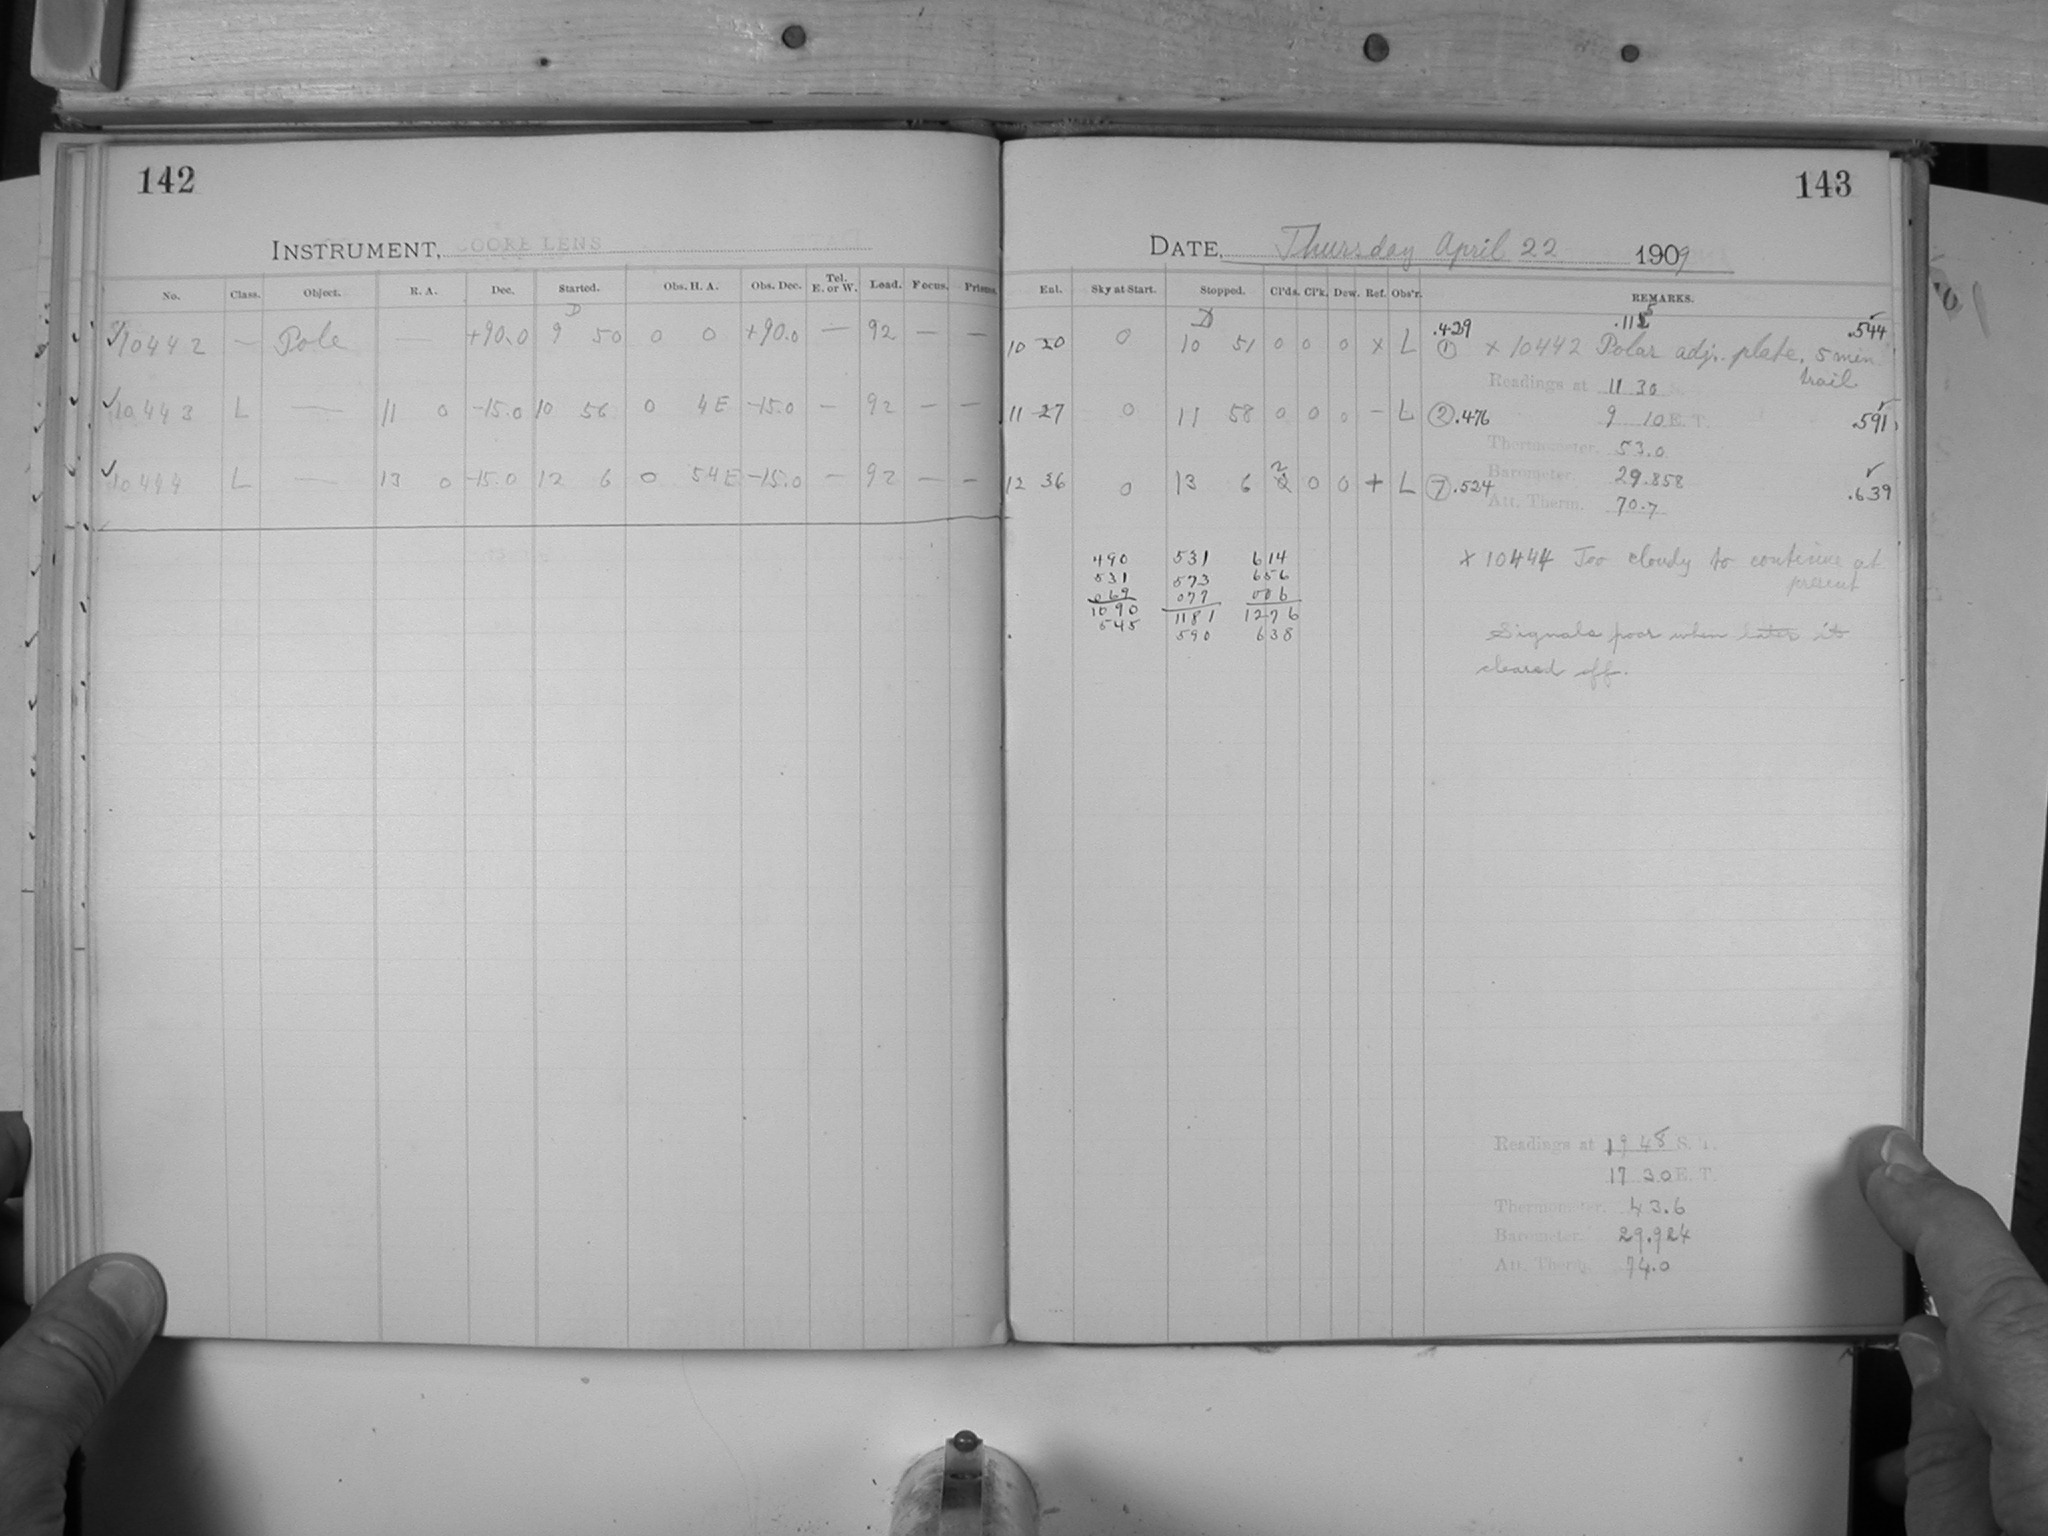 142
INSTRUMENT, COOKE LENS
No. Class. Object. R. A. Dec. Started. Obs. H. A. Obs. Dec. Tel. E. or W. Load. Focus. Prisms.
D
10442 — Pole — +90.0 9 50 0 0 +90.0 — 92 — —
10443 L — 11 0 -15.0 10 56 0 4E -15.0 — 92 — —
10444 L — 13 0 -15.0 12 6 0 54E -15.0 — 92 — —
143
DATE, Thursday April 22 1909
Ent. Sky at Start. Stopped. Cl'ds. Cl'k. Dew. Ref. Obs'r. REMARKS.
D .429 .115 .544
10 20 0 10 51 0 0 0 x L ① x 10442 Polar adj. plate, 5 min
trail
Readings at 11 30 S.
11 27 0 11 58 0 0 0 — L ② .476 9 10 E. T. .591
Thermometer. 53.0
12 36 0 13 6 2 0 0 + L ⑦ .524 Barometer. 29.858 .639
Att. Therm. 70.7
490 531 614
531 573 656
069 077 006
1090 1181 1276
545 590 638
x 10444 Too cloudy to continue at
present
Signals poor when later it
cleared off.
Readings at 19 48 S. T.
17 30 E. T.
Thermometer. 43.6
Barometer. 29.924
Att. Therm. 74.0